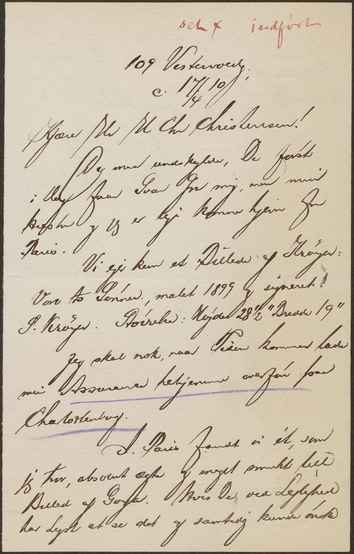 indført
109 Vestervold
17/10
Kjære Hr H Chr Christensen!
De maa undskylde, De først
i dag faar Svar fra mig, men min
og jeg er lige kommen hjem fra
Paris.
Vi eje kun et Billede af Krøyer:
Vore to Sønner, malet 1899 og signeret
P. Krøyer. Størrelse: Højde 28½" Bredde 19"
Jeg skal nok, naar Tiden kommer lade
min Assurance betjenene overfør fra
Charlottenborg.
I Paris fandt vi ét, som
jeg tror, absolut ægte og meget smukt lille
Billed af Goya. Hvis De, ved Lejlighed
har Lyst at se det og samtidig kunde